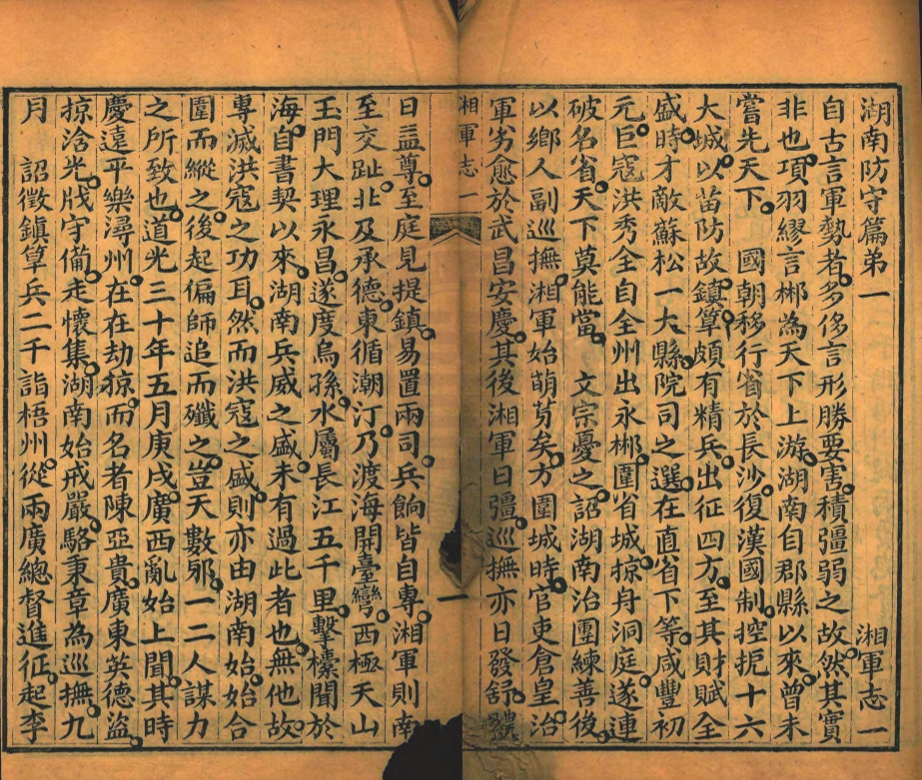 湖南防守篇弟一　湘軍志一
自古言軍勢者多侈言形勝要害積彊弱之故然其實
非也項羽繆言郴為天下上游湖南自郡縣以來曾未
嘗先天下　國朝移行省於長沙復漢國制控扼十六
大城以苗防故鎮筸頗有精兵出征四方至其財賦全
盛時才敵蘇松一大縣院司之選在直省下等咸豐初
元巨寇洪秀全自全州出永郴圍省城掠舟洞庭遂連
破名省天下莫能當　文宗憂之詔湖南治團練善後
以鄉人副巡撫湘軍始萌芽矣方圍城時官吏倉皇治
軍劣愈於武昌安慶其後湘軍日彊巡撫亦日發舒體
湘軍志一　一
日益尊至庭見提鎮易置兩司兵餉皆自專湘軍則南
至交趾北及承德東循潮汀乃渡海開臺灣西極天山
玉門大理永昌遂度烏孫水屬長江五千里擊柝聞於
海自書契以來湖南兵威之盛未有過此者也無他故
專滅洪寇之功耳然而洪寇之盛則亦由湖南始始合
圍而縱之後起偏師追而殲之豈天數邪一二人謀力
之所致也道光三十年五月庚戌廣西亂始上聞其時
慶遠平樂潯州在在劫掠而名者陳亞貴廣東英德盜
掠浛光戕守備走懷集湖南始戒嚴駱秉章為巡撫九
月　詔徵鎮筸兵二千詣梧州從兩廣總督進征起李